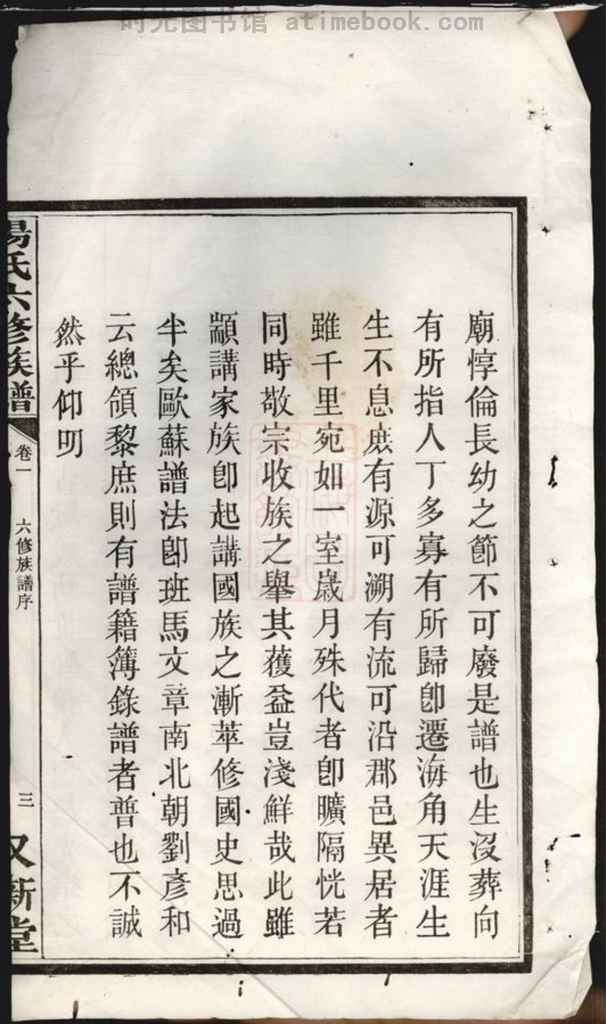 时光图书馆 atimebook.com
廟惇倫長幼之節不可廢是譜也生沒葬向
有所指人丁多寡有所歸卽遷海角天涯生
生不息庶有源可溯有流可沿郡邑異居者
雖千里宛如一室歲月殊代者卽曠隔恍若
同時敬宗收族之舉其獲益豈淺鮮哉此雖
顓講家族卽起講國族之漸萃修國史思過
半矣歐蘇譜法卽班馬文章南北朝劉彥和
云總領黎庶則有譜籍簿錄譜者普也不誠
然乎仰明
楊氏六修族譜
卷一
六修族譜序
三
又新堂